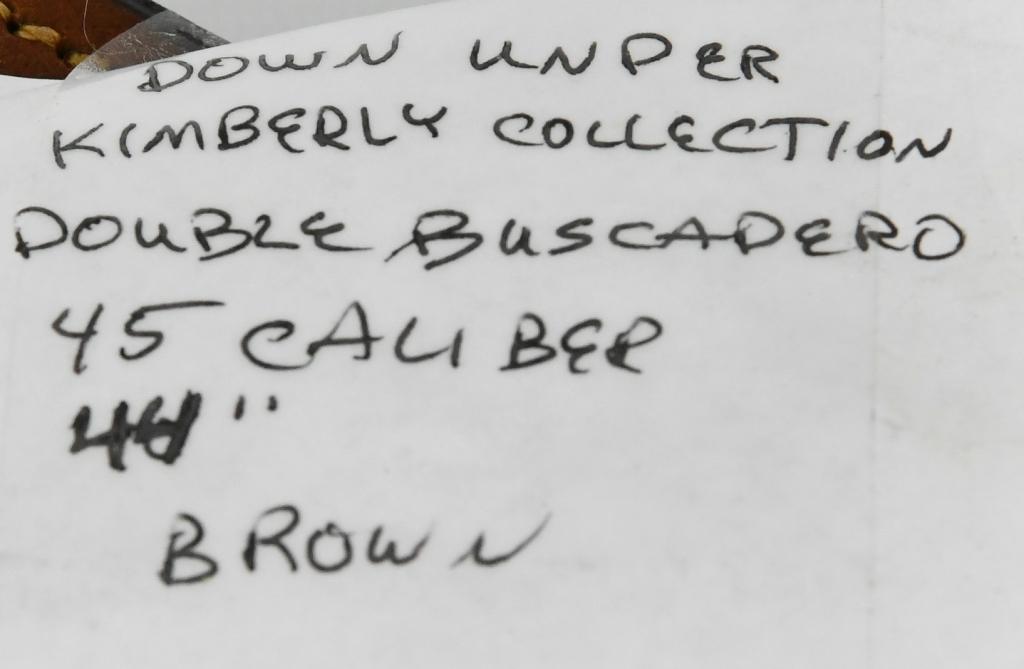 DOWN UNDER
KIMBERLY COLLECTION
DOUBLE BUSCADERO
45 CALIBER
44"
BROWN